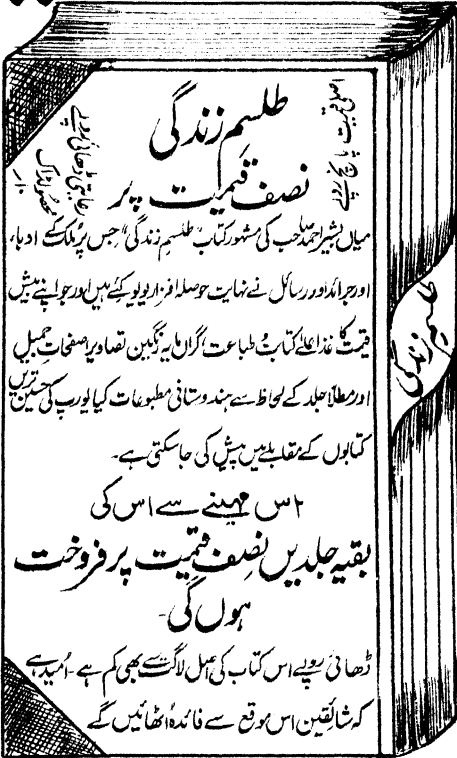 طلسمِ زندگی
نصف قیمت پر
اصلی قیمت پانچ روپے
رعایتی ڈھائی روپے
محصول ڈاک ۱۰؍
میاں بشیر احمد صاحب کی مشہور کتاب "طلسمِ زندگی" جس پر ملک کے ادباء،
اور جرائد اور رسائل نے نہایت حوصلہ افزا ریویو کئے ہیں اور جو اپنے بیش
قیمت کاغذ اعلیٰ کتابت و طباعت، گراں مایہ رنگین تصاویر صفحات جمیل
اور مطلّا جلد کے لحاظ سے ہندوستانی مطبوعات کیا یورپ کی حسین ترین
کتابوں کے مقابلے میں پیش کی جا سکتی ہے۔
اس مہینے سے اس کی
بقیہ جلدیں نصف قیمت پر فروخت
ہوں گی۔
ڈھائی روپے اس کتاب کی اصل لاگت سے بھی کم ہے۔ اُمید ہے
کہ شائقین اس موقع سے فائدہ اٹھائیں گے
طلسمِ زندگی